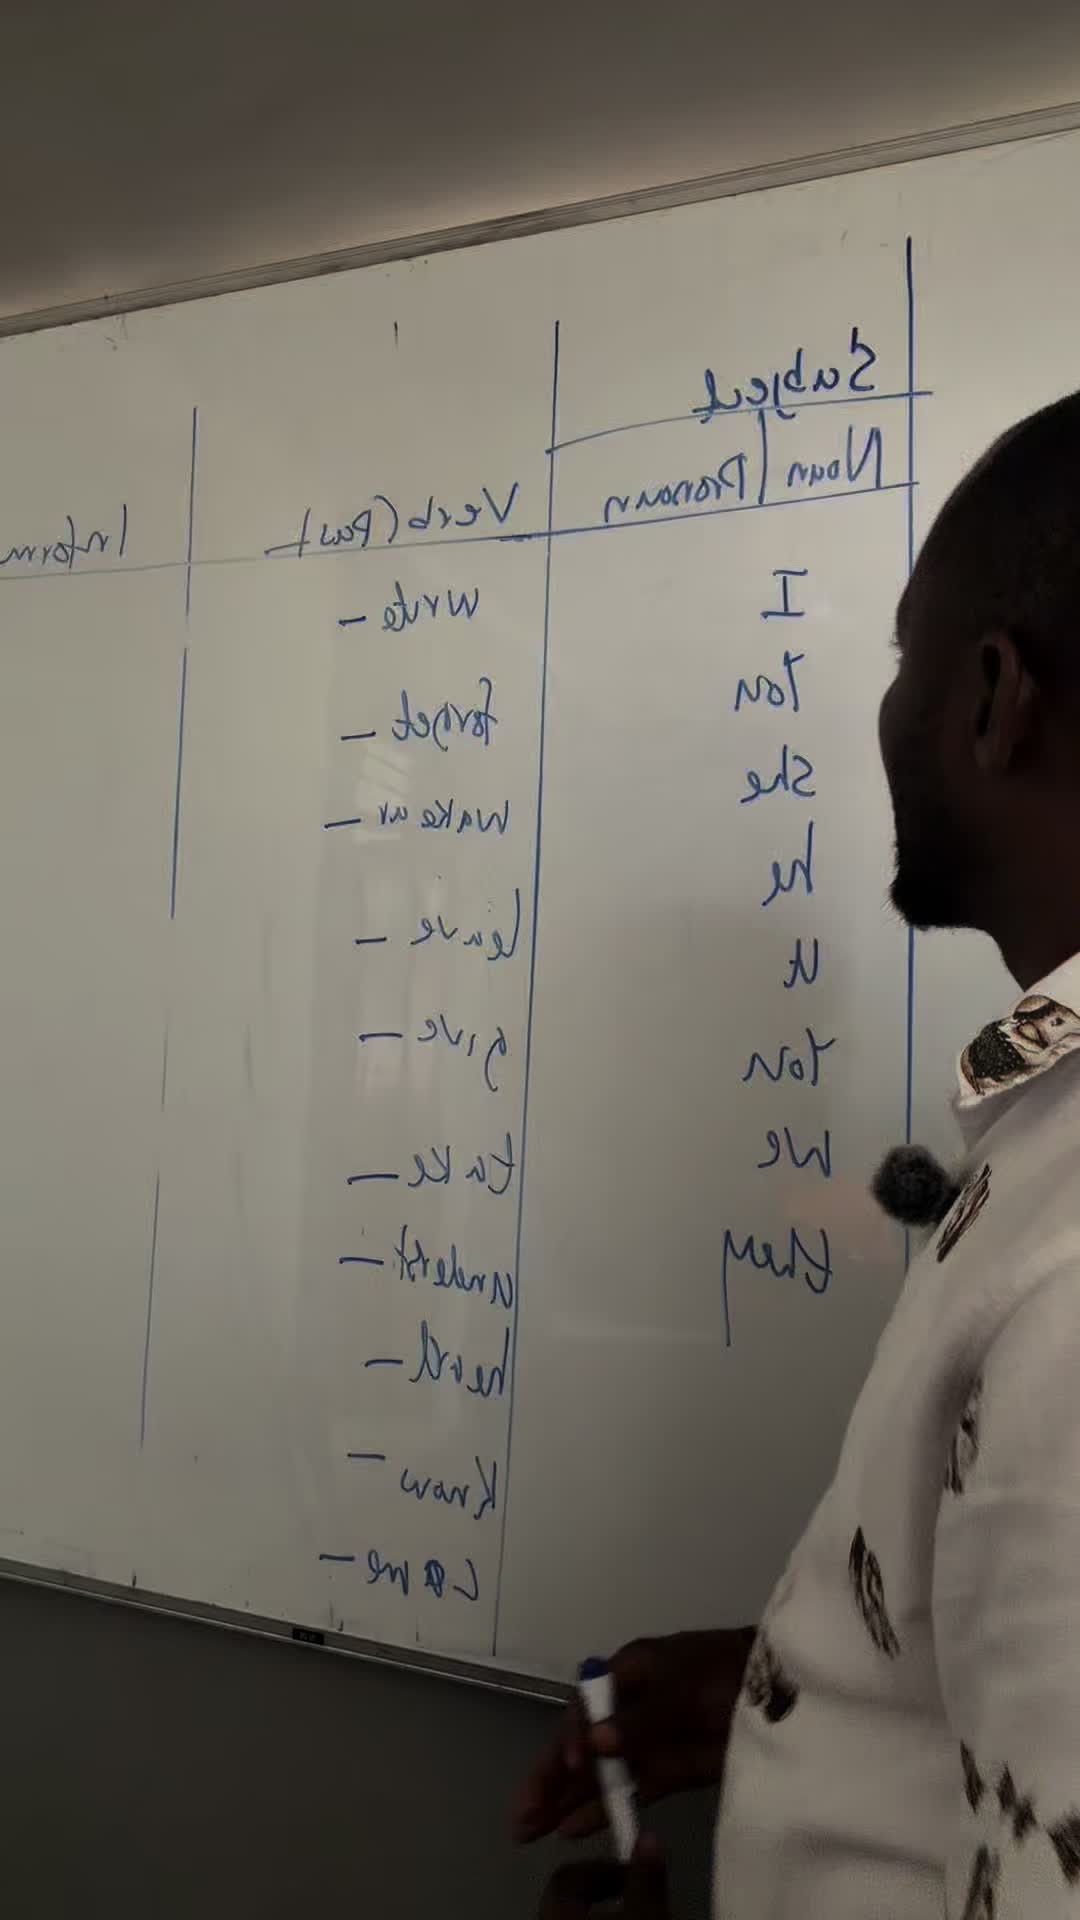 Subject
Noun | Pronoun
Verb (Past
Inform
I
You
she
he
it
You
we
they
write -
forget -
wake up -
leave -
give -
take -
underst -
Know -
come -